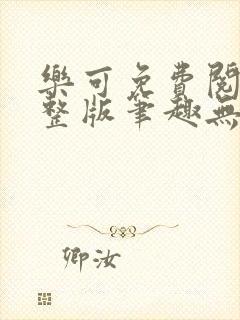 樂可免費閱
整版筆趣無
卿汝